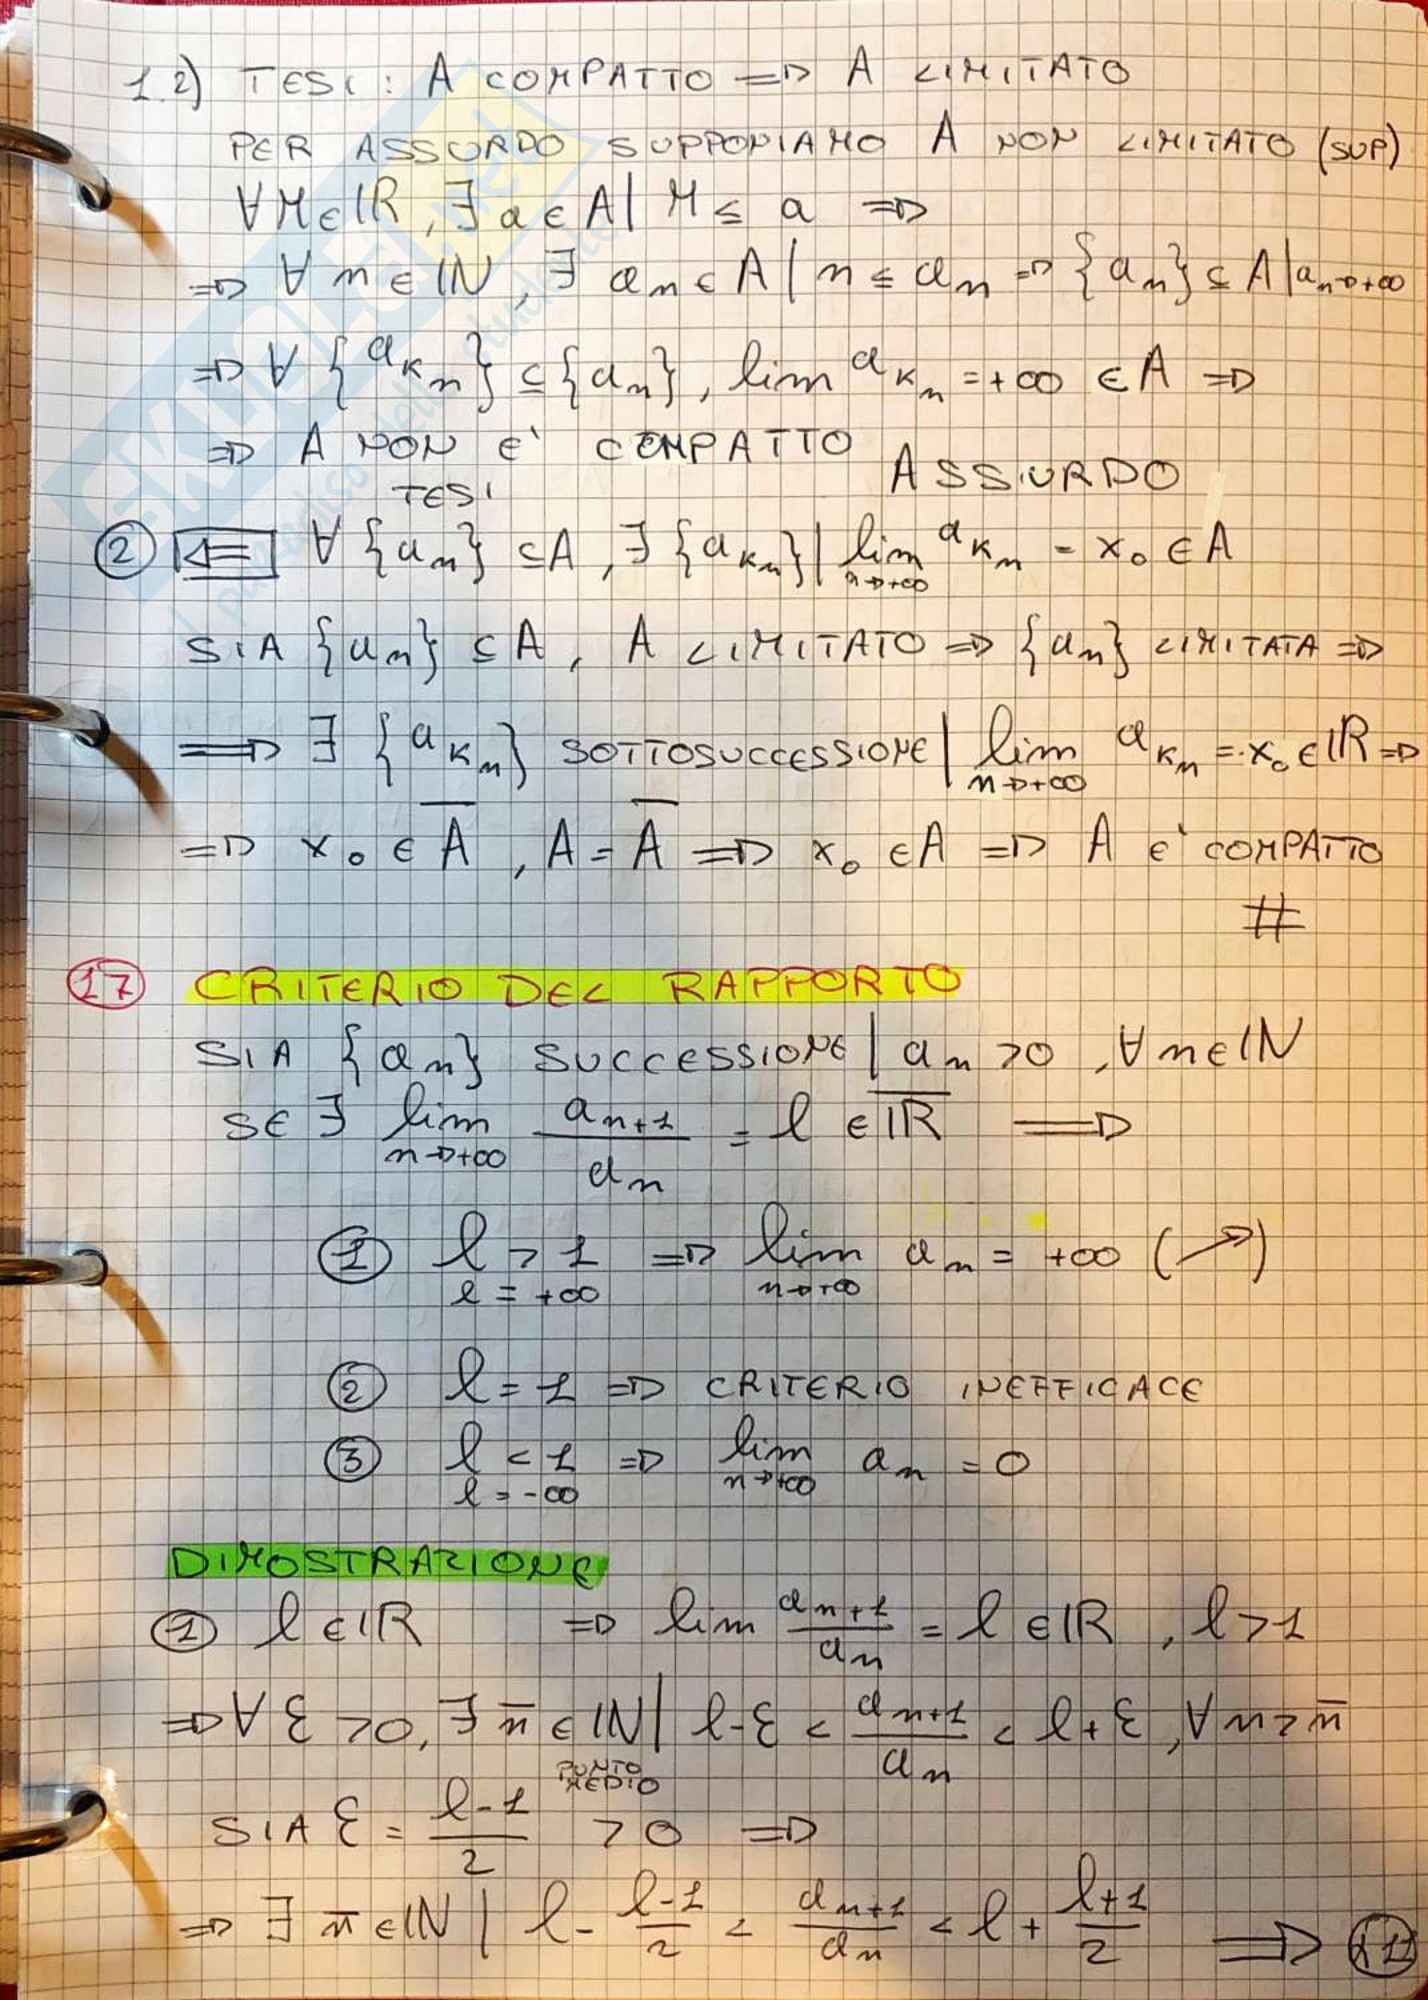 1.2) TESI: A COMPATTO => A LIMITATO
PER ASSURDO SUPPONIAMO A NON LIMITATO (SUP)
∀M∈ℝ, ∃ a∈A | M ≤ a =>
=> ∀ n∈ℕ, ∃ aₙ∈A | n ≤ aₙ => {aₙ} ⊆ A | aₙ→+∞
=> ∀ {a_kₙ} ⊆ {aₙ}, lim a_kₙ = +∞ ∈ A =>
=> A NON E' COMPATTO ASSURDO
TESI
② <= ∀ {aₙ} ⊆ A, ∃ {a_kₙ} | lim n→+∞ a_kₙ = x₀ ∈ A
SIA {aₙ} ⊆ A, A LIMITATO => {aₙ} LIMITATA =>
=> ∃ {a_kₙ} SOTTOSUCCESSIONE | lim n→+∞ a_kₙ = x₀ ∈ ℝ =>
=> x₀ ∈ A̅, A = A̅ => x₀ ∈ A => A E' COMPATTO
#
17 CRITERIO DEL RAPPORTO
SIA {aₙ} SUCCESSIONE | aₙ > 0, ∀ n∈ℕ
SE ∃ lim n→+∞ aₙ₊₁/aₙ = l ∈ ℝ̅ =>
① l > 1 => lim n→+∞ aₙ = +∞ (↗)
l = +∞
② l = 1 => CRITERIO INEFFICACE
③ l < 1 => lim n→+∞ aₙ = 0
l = -∞
DIMOSTRAZIONE
① l ∈ ℝ => lim aₙ₊₁/aₙ = l ∈ ℝ, l > 1
=> ∀ Ɛ > 0, ∃ n̅ ∈ ℕ | l-Ɛ < aₙ₊₁/aₙ < l+Ɛ, ∀ n ≥ n̅
PUNTO MEDIO
SIA Ɛ = (l-1)/2 > 0 =>
=> ∃ n̅ ∈ ℕ | l - (l-1)/2 < aₙ₊₁/aₙ < l + (l+1)/2 =>
SKUOLA.net
il paradiso dello studente